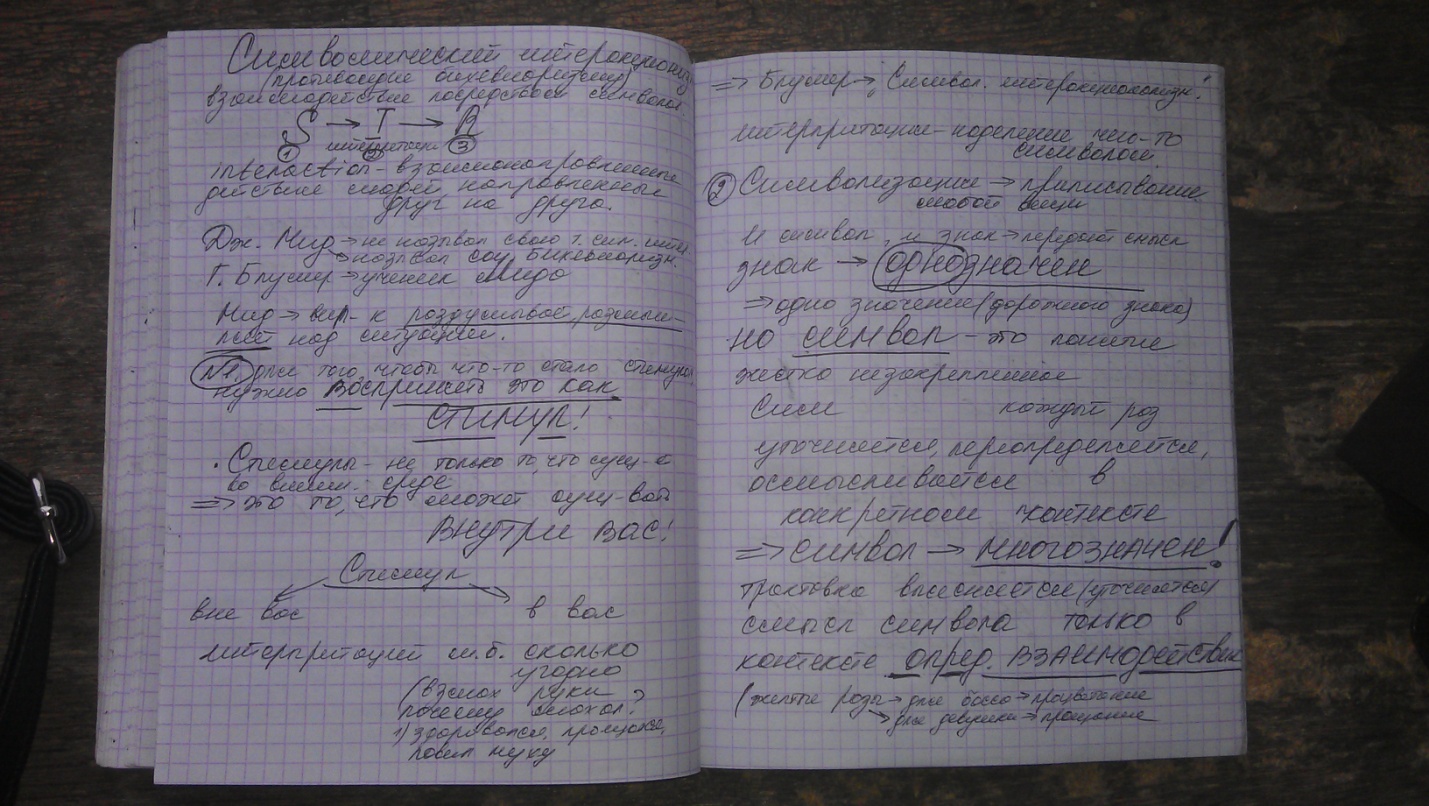 Символический интеракционизм
(противоядие бихевиоризму)
взаимодействие посредством символов
S → I → R
интерпретация
① ② ③
interaction - взаимонаправленные
действие людей, направленные
друг на друга.
Дж. Мид → не называл свою т. сим. интер.
→ называл соц. бихевиоризм.
Г. Блумер → ученик Мида
Мид → к раздумывает, размыш-
ляет над ситуацией.
№1 для того, чтобы что-то стало стимулом
нужно воспринять это как
стимул!
· Стимулы - не только то, что сущ-т
во внешн. среде
⇒ это то, что может сущ-вать
внутри вас!
Стимул
вне вас в вас
интерпретаций м.б. сколько
угодно
(взмах руки
почему махал?)
1) здоровался, прощался,
ловил муху
⇒ Блумер → Символ. интеракционизм!
интерпритация - наделение чего-то
символом
② Символизация → приписывание
любой вещи
И символ, и знак → передают смысл
знак → однозначен
⇒ одно значение (дорожного знака)
но символ - это понятие
жестко незакрепленное
Симв каждый раз
уточняется, переопределяется,
осмысливается в
конкретном контексте
⇒ символ → многозначен!
трактовка выясняется (уточняется)
смысл символа только в
контексте опред. взаимодействия
(желтые розы → для босса → процветание
→ для девушки → прощание